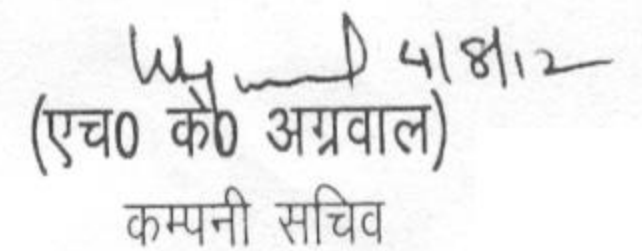 4/8/12
(एच0 के0 अग्रवाल)
कम्पनी सचिव